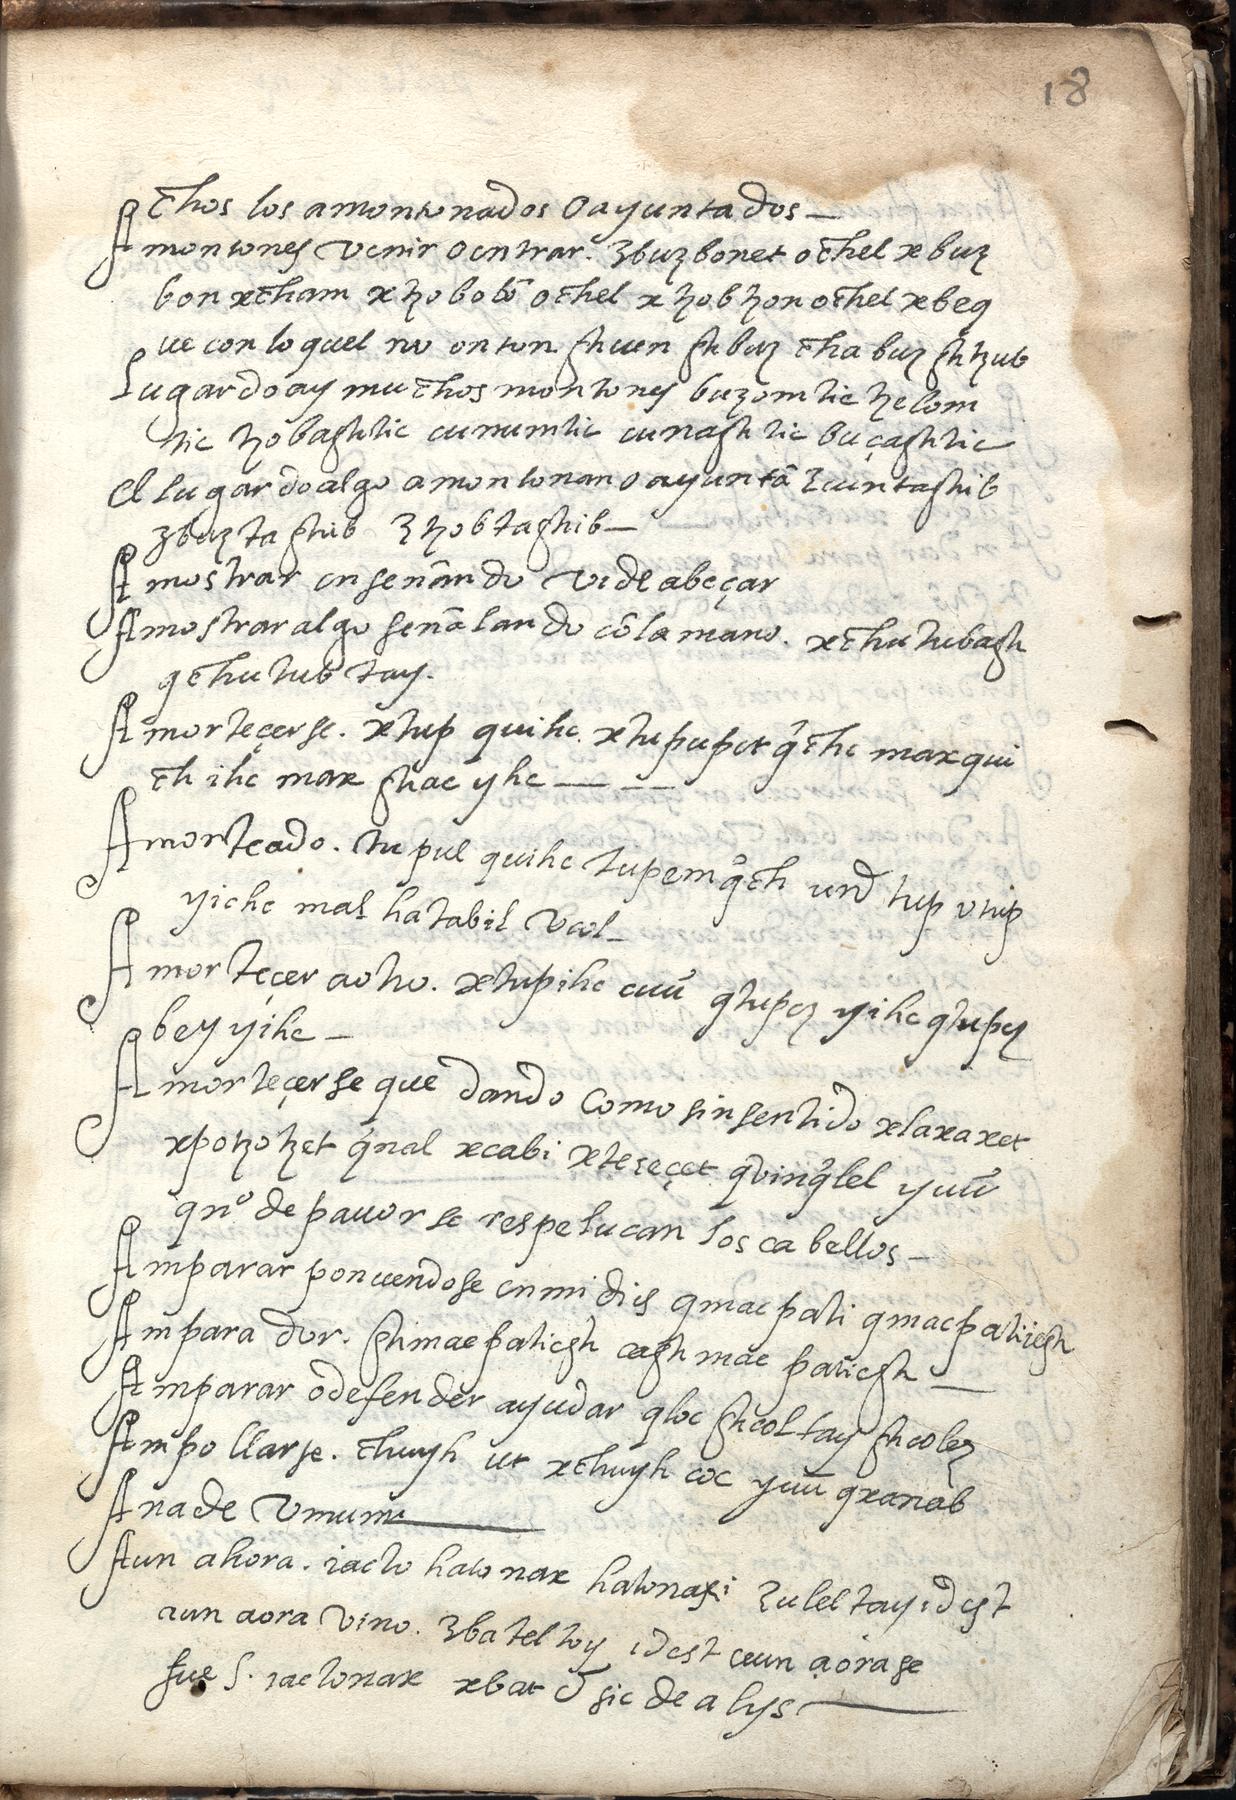 18
chos los amontonados o ayuntados
Amontones venir o entrar. Ꜫbuꜩbonet ochel xbuꜩ
bon xcham xꜩobobō ochel xꜩobꜩon ochel xbeq
ue con lo quel no onton. shuen shbuꜩ cha buꜩ shꜩub
Lugar do ay muchos montones buꜩomtic ꜩelom
tic ꜩobashtic cunumtic cunashtic buçashtic
el lugar do algo amontonan o ayuntā Ꜫcuntashib
Ꜫbuꜩtashib Ꜫꜩobtashib
Amostrar enseñando vide abeçar
Amostrar algo señalando cō la mano. xchutubash
qchutub tay.
Amorteçerse. xtup quihc. xtupupet qche max qui
ch ihc max shac yhc
Amorteado. tupul quihc tupem tup vtup
yichc mal hatabil vcol
Amorteçer a otro. xtupihc cuū qtupeꜩ yihc qtupeꜩ
bey yihc
Amorteçerse quedando como sin sentido xlaxaxet
xpoꜩoꜩet q̄nal xcabi yuū
qn͂o de pavor se respelucan los cabellos
Amparar ponuendose en midis qmacpati qmacpatiish
Amparador. shmacpatiesh aghmac patiesh
Amparar o defender ayudar qloc shcoltay shcoleꜩ
Ampollarse. chuysh ut xchuysh coc yuū qxanab
Anade vmum
Aun ahora. iacto hato nax hatonaxi Ꜫulel tay id est
aun aora vino. Ꜫbatel toy id est aun aora se
fue s. iactonax xbat & sic de alys